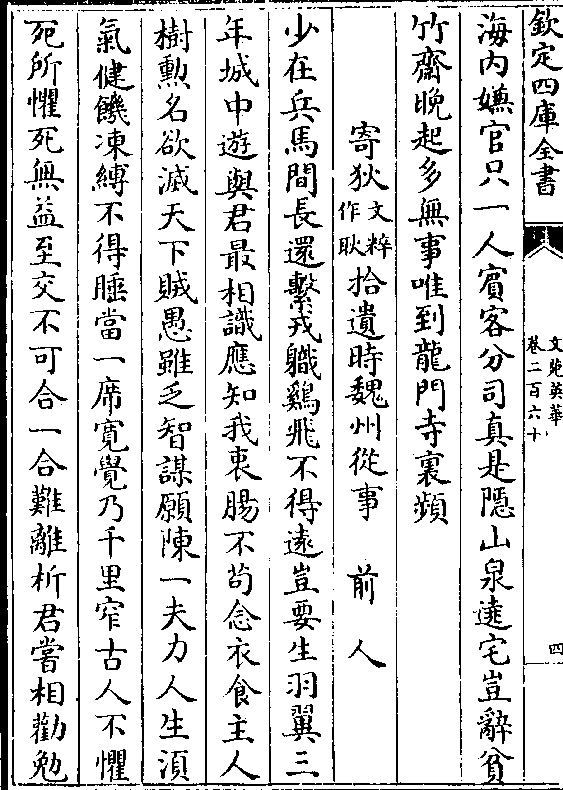 欽定四庫全書
文苑英華
卷二百六十
四
海内嫌官只一人賓客分司真是隱山泉遶宅豈辭貧
竹齋晚起多無事唯到龍門寺裏頻
寄狄文粹作耿拾遺時魏州從事　前人
少在兵馬間長還繫戎職鷄飛不得遠豈要生羽翼三
年城中遊與君最相識應知我衷腸不苟念衣食主人
樹勲名欲滅天下賊愚雖乏智謀願陳一夫力人生須
氣健饑凍縛不得睡當一席寛覺乃千里窄古人不懼
死所懼死無益至交不可合一合難離析君嘗相勸勉